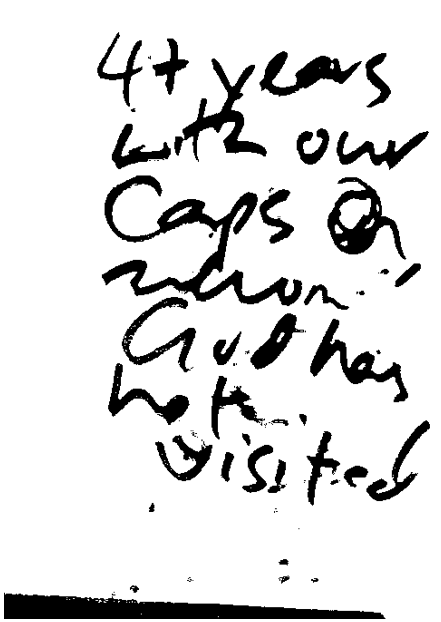 4+ years
with our
Caps on
God has
not
visited